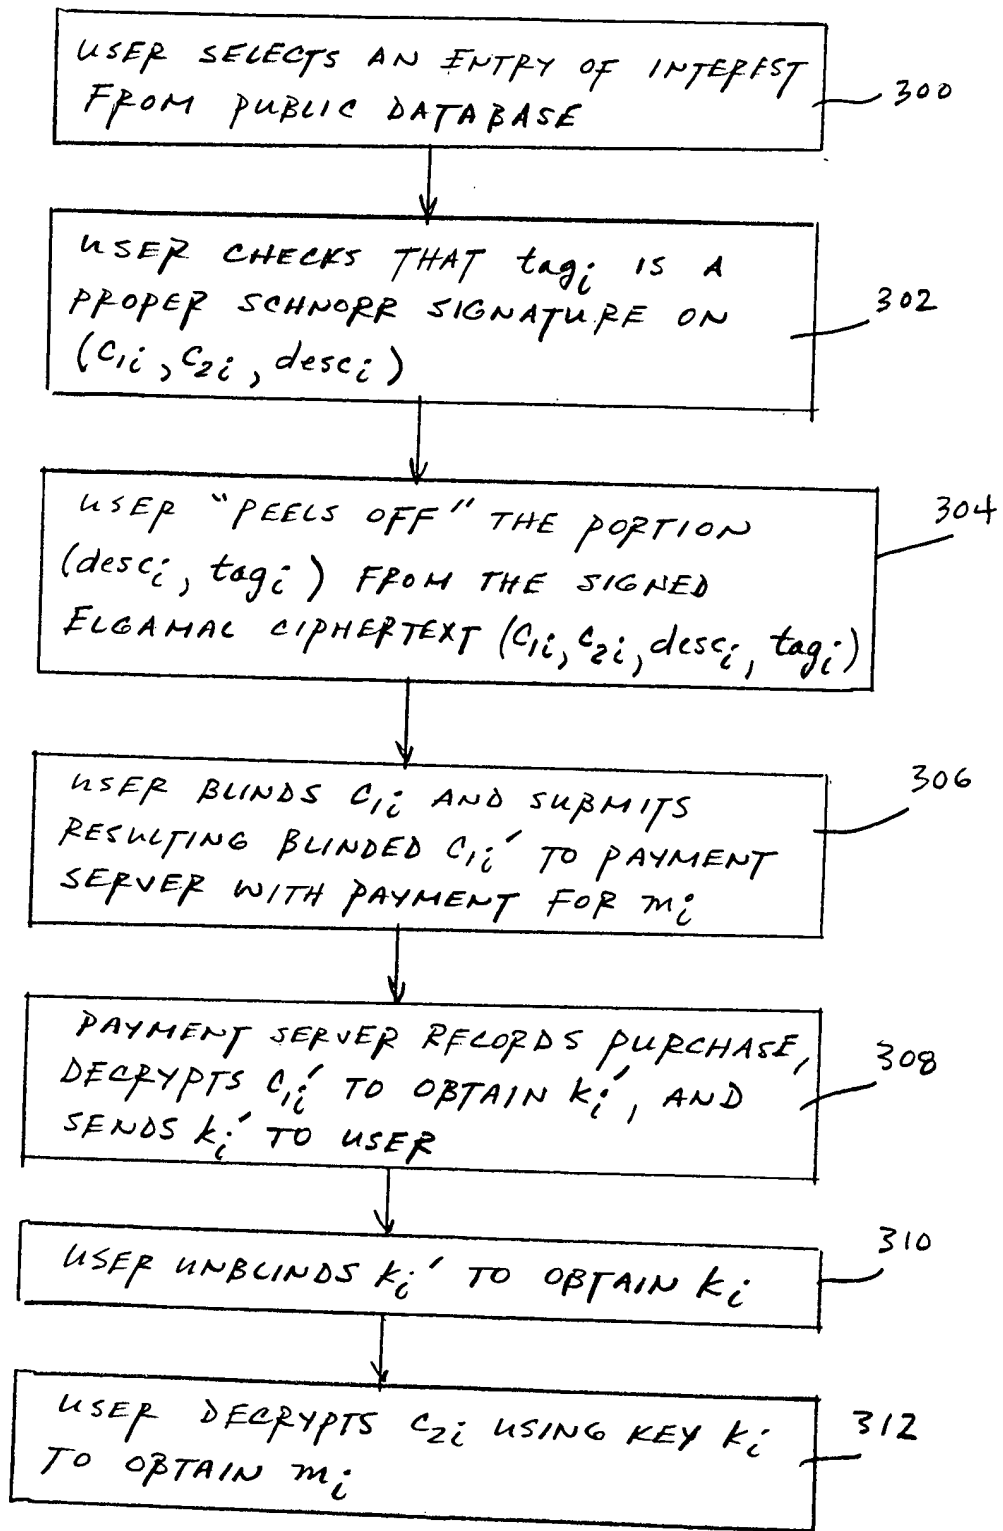 USER SELECTS AN ENTRY OF INTEREST
FROM PUBLIC DATABASE
300
USER CHECKS THAT tagᵢ IS A
PROPER SCHNORR SIGNATURE ON
(C₁ᵢ, C₂ᵢ, descᵢ)
302
USER "PEELS OFF" THE PORTION
(descᵢ, tagᵢ) FROM THE SIGNED
ELGAMAL CIPHERTEXT (C₁ᵢ, C₂ᵢ, descᵢ, tagᵢ)
304
USER BLINDS C₁ᵢ AND SUBMITS
RESULTING BLINDED C₁ᵢ' TO PAYMENT
SERVER WITH PAYMENT FOR mᵢ
306
PAYMENT SERVER RECORDS PURCHASE,
DECRYPTS C₁ᵢ' TO OBTAIN kᵢ', AND
SENDS kᵢ' TO USER
308
USER UNBLINDS kᵢ' TO OBTAIN kᵢ
310
USER DECRYPTS C₂ᵢ USING KEY kᵢ
TO OBTAIN mᵢ
312